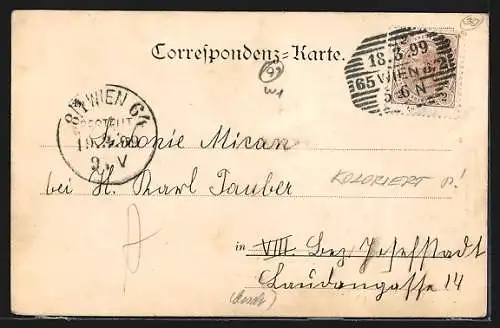 Correspondenz-Karte.
18.3.99
65 WIEN 8/2
5-6 N
8/1 WIEN 64
BESTELLT
19.3.99
9. V
Leonie Mican
bei H. Karl Tauber
KOLORIERT
in VIII. Bez. Josefstadt
Laudongasse 14